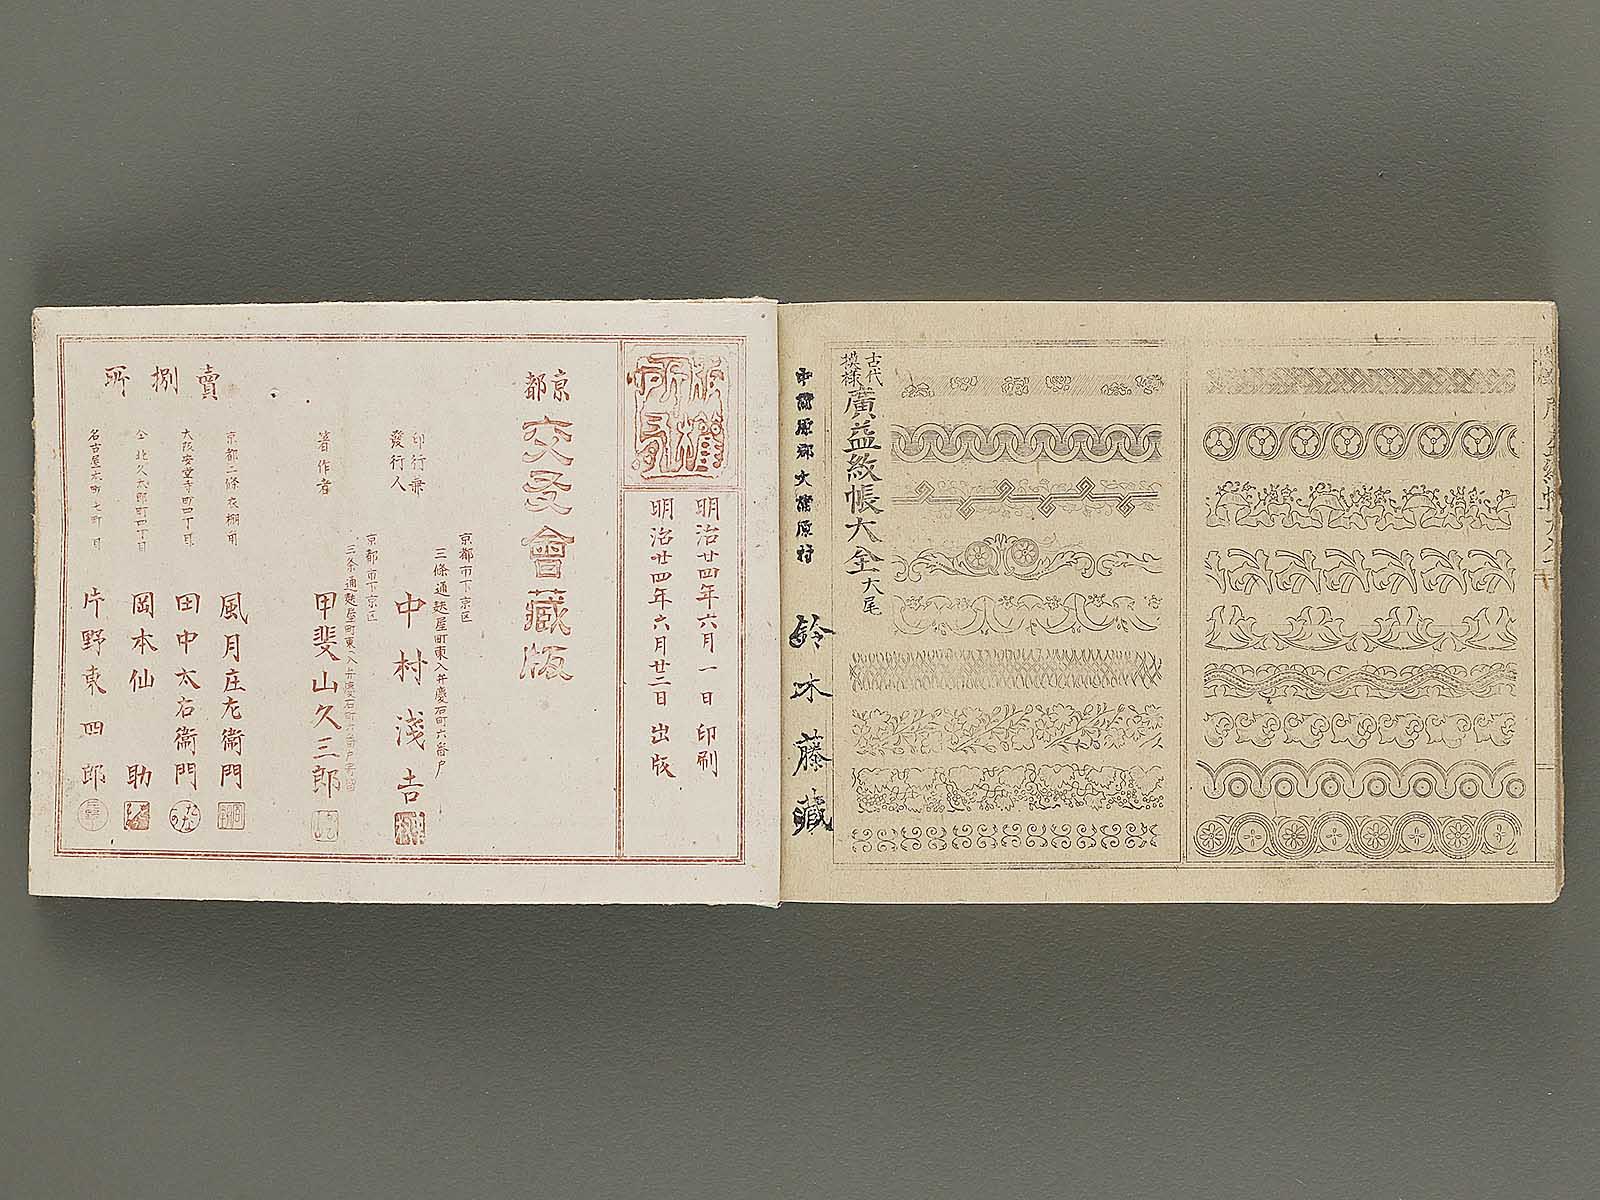 古代
模様
廣益紋帳大全大尾
中蒲原郡大蒲原村
鈴木藤藏
版權所有
明治廿四年六月一日印刷
明治廿四年六月廿二日出版
京都
交叟會藏版
京都市下京区
三條通麩屋町東入弁慶石町六番戸
印行兼
發行人
中村淺吉
京都市下京区
三条通麩屋町東入弁慶石町
著作者
甲斐山久三郎
賣捌所
京都二條衣棚角
風月庄左衞門
大阪安堂寺町四丁目
田中太右衞門
仝北久太郎町四丁目
岡本仙助
名古屋本町七町目
片野東四郎